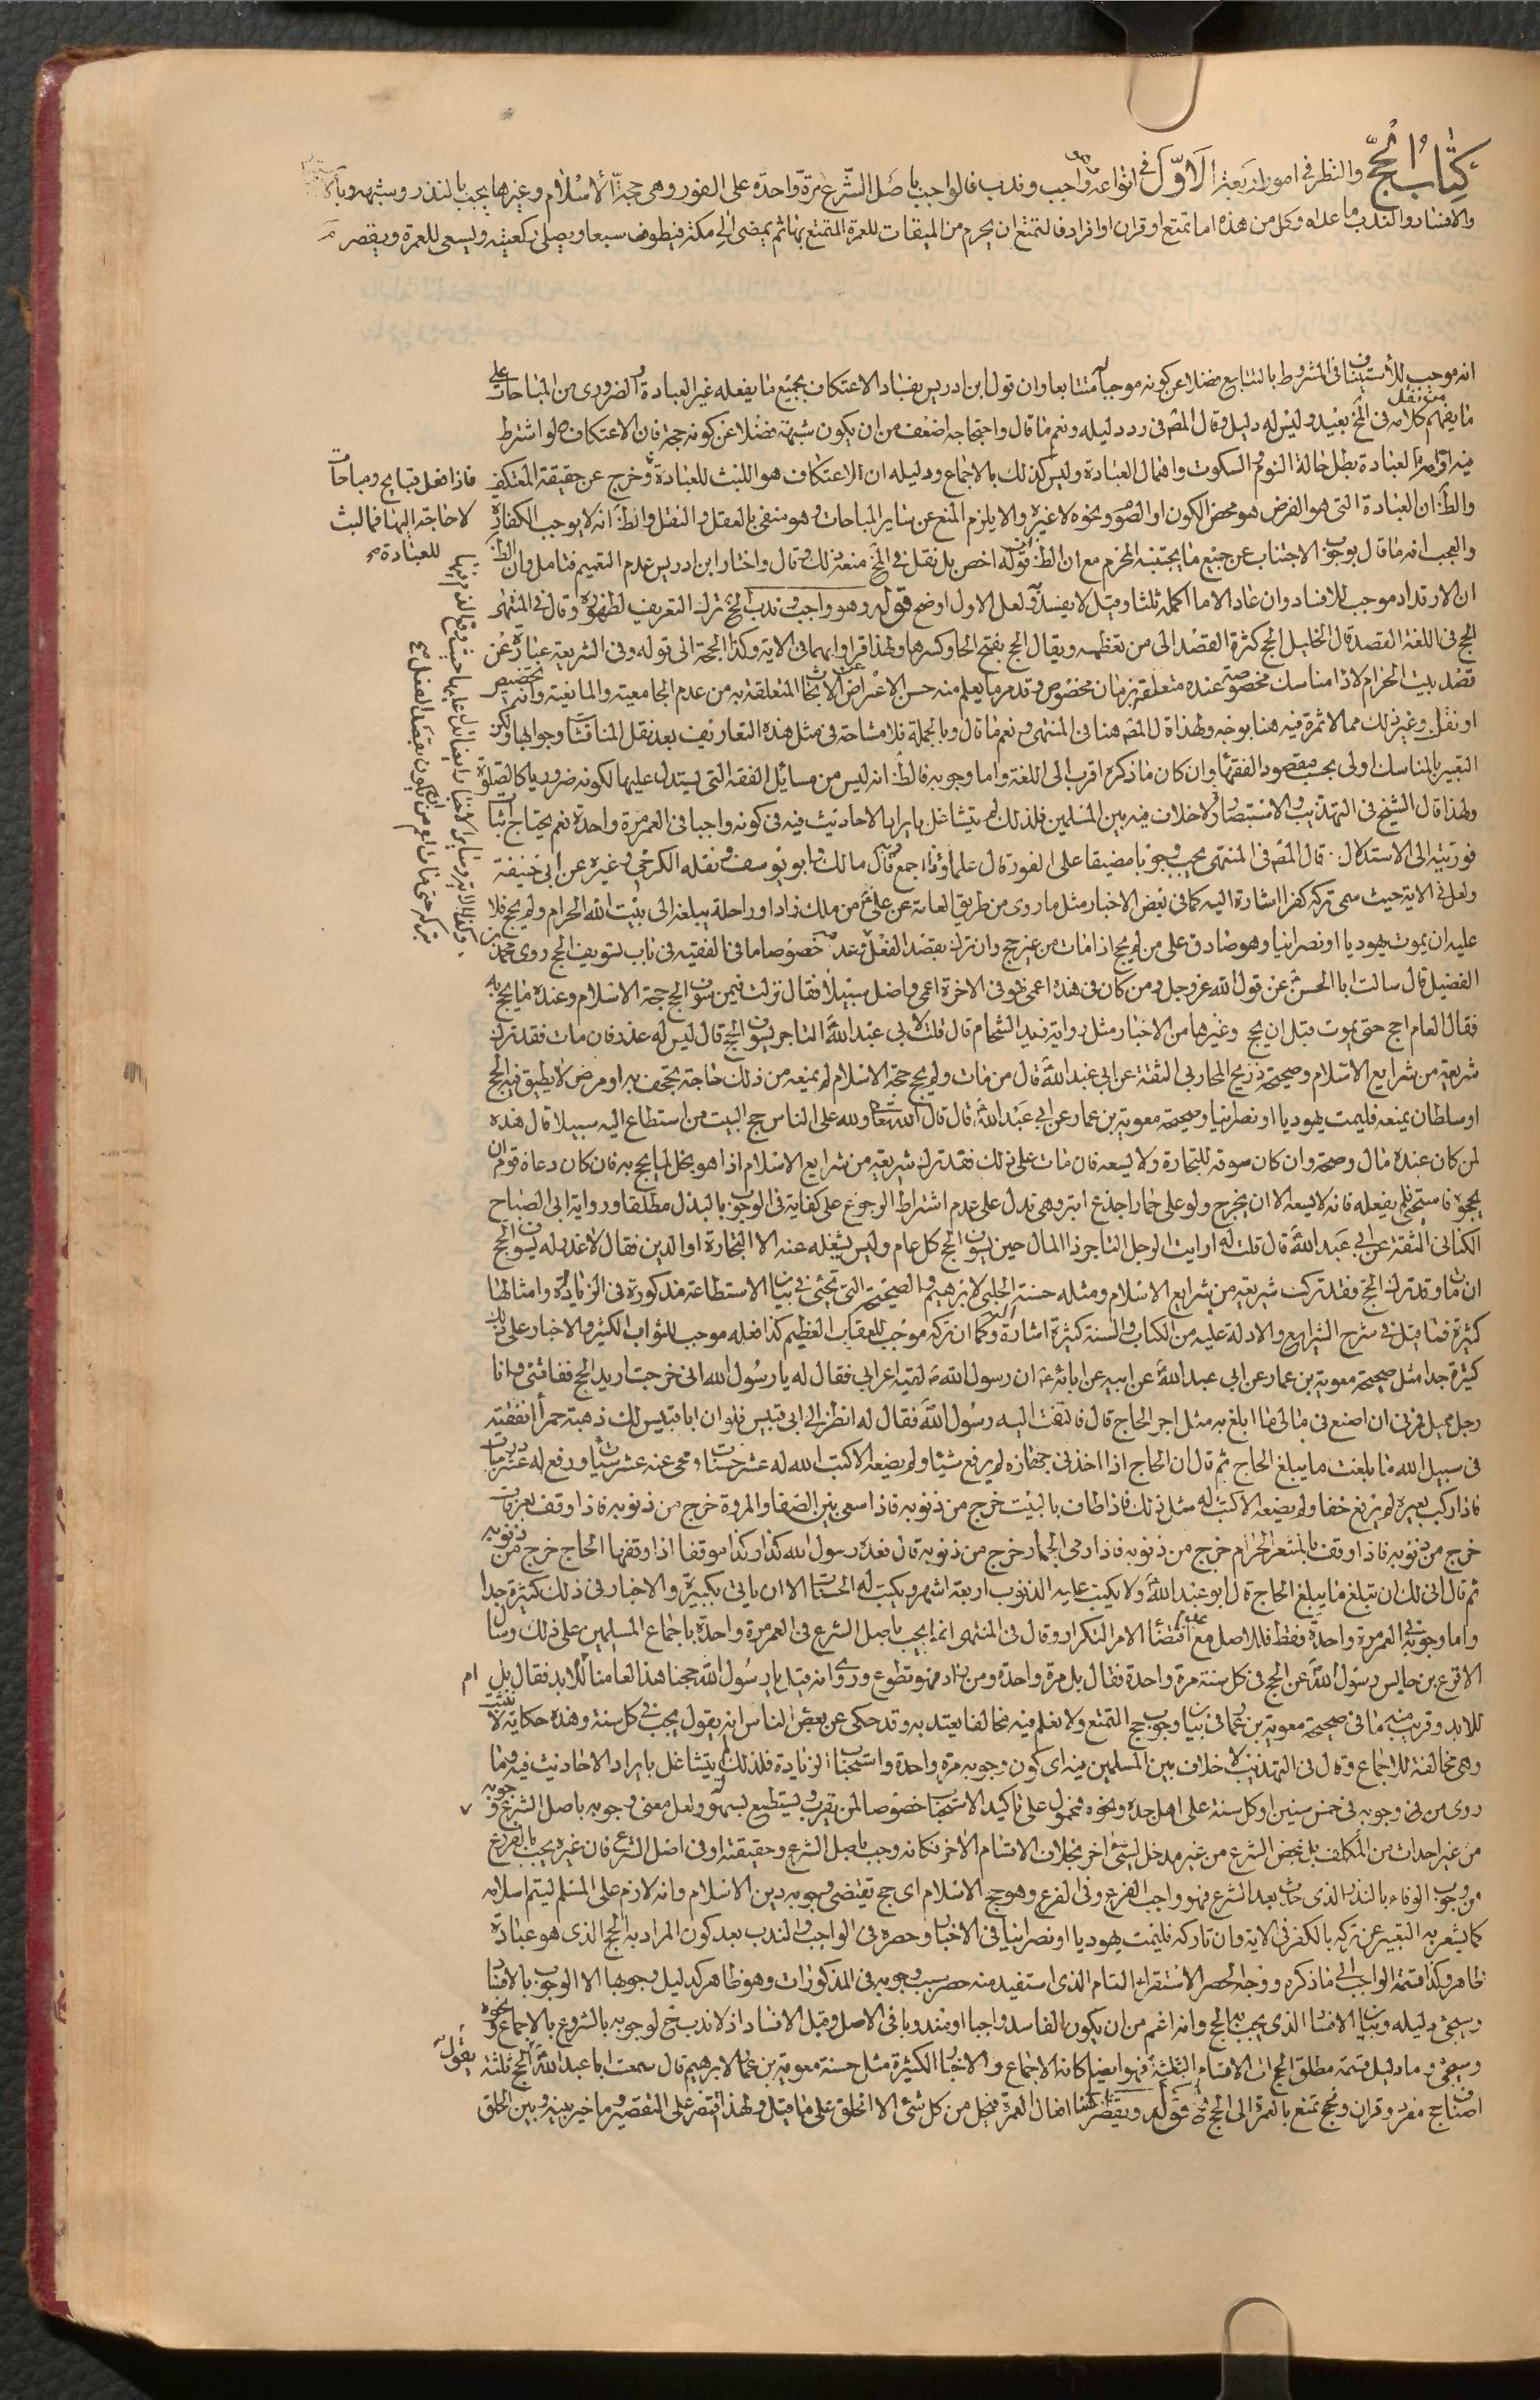 كتاب الحج والنظر في امور اربعة الاول في انواعه وهو واجب وندب فالواجب باصل الشرع مرة واحدة على الفور وهي حجة الاسلام وغيرها يجب بالنذر وشبهه وبالاستيجار
والافساد والندب ما عداه وكل من هذه اما تمتع او قران او افراد فالتمتع ان يحرم من الميقات للعمرة المتمتع بها ثم يمضي الى مكة فيطوف سبعا ويصلي ركعتيه ويسعى للعمرة ويقصر
انه موجب للاستيناف في المشروط بالتتابع فضلا عن كونه موجبا متتابعا وان قول ابن ادريس بفساد الاعتكاف بجميع ما يفعله غير العبادة والضروري من المباحات على
ما يفهم من نقل كلامه في المخ بعيد وليس له دليل وقال المصه في رد دليله ونعم ما قال واحتجاجه اضعف من ان يكون شبهة فضلا عن كونه حجة فان الاعتكاف لو اشترط
فيه اقامة العبادة بطل حالة النوم والسكوت واهمال العبادة وليس كذلك بالاجماع ودليله ان الاعتكاف هو اللبث للعبادة وخرج عن حقيقة المعتكف
فاذا فعل قبايح ومباحات
لا حاجة اليها فما لبث
للعبادة
والظ ان العبادة التي هو الفرض هو محض الكون او الصوم ونحوه لا غيره والا يلزم المنع عن ساير المباحات وهو منفي بالعقل والنقل والظ انه لا يوجب الكفارة
والعجب انه ما قال بوجوب الاجتناب عن جميع ما يجتنبه المحرم مع ان الظ ان قوله اخص بل نقل في المخ منعه ذلك وقال واختار ابن ادريس عدم التعميم فتامل وان الظ
ان الارتداد موجب للافساد وان عاد الا ما اكمله ثلثا وقيل لا يفسد ولعل الاول اوضح قوله وهو واجب وندب الخ ترك التعريف لظهوره وقال في المنتهى
الحج في اللغة القصد قال الخليل الحج كثرة القصد الى من تعظمه ويقال الحج بفتح الحا وكسرها ولهذا قراوا بهما في الاية وكذا الحجة الى قوله وفي الشريعة عبارة عن
قصد بيت الحرام لاداء مناسك مخصوصة عنده متعلقة بزمان مخصوص وقد مر ما يعلم منه حسن الاعراض عن الابحاث المتعلقة به من عدم الجامعية والمانعية وانه تخصيص
او نقل وغير ذلك مما لا ثمرة فيه هنا بوجه ولهذا قال المصه هنا في المنتهى ونعم ما قال وبالجملة فلا مشاحة في مثل هذه التعاريف بعد نقل المناقشات وجوابها ولكن
التعبير بالمناسك اولى بحسب مقصود الفقهاء وان كان ما ذكره اقرب الى اللغة واما وجوبه فالظ انه ليس من مسائل الفقه التي يستدل عليها لكونه ضروريا كالصلوة
ولهذا قال الشيخ في التهذيب والاستبصار ولا خلاف فيه بين المسلمين فلذلك لم يتشاغل بايراد الاحاديث فيه في كونه واجبا في العمر مرة واحدة نعم يحتاج اثبات
فوريته الى الاستدلال قال المصه في المنتهى يجب وجوبا مضيقا على الفور قال علماؤنا اجمع وبه قال مالك وابو يوسف ونقله الكرخي وغيره عن ابي حنيفة
ولعل في الاية حيث سمى تركه كفرا اشارة اليه كما في بعض الاخبار مثل ما روي من طريق العامة عن علي ع من ملك زادا وراحلة يبلغه الى بيت الله الحرام ولم يحج فلا
عليه ان يموت يهوديا او نصرانيا وهو صادق على من لم يحج اذا مات من غير حج وان ترك بقصد الفعل وعدمه خصوصا ما في الفقيه في باب تسويف الحج روى محمد بن
الفضيل قال سالت ابا الحسن ع عن قول الله عز وجل ومن كان في هذه اعمى فهو في الاخرة اعمى واضل سبيلا فقال نزلت فيمن سوف الحج حجة الاسلام وعنده ما يحج به
فقال العام احج حتى يموت قبل ان يحج وغيرها من الاخبار مثل رواية زيد الشحام قال قلت لابي عبد الله ع التاجر يسوف الحج قال ليس له عذر فان مات فقد ترك
شريعة من شرايع الاسلام وصحيحة ذريح المحاربي الثقة عن ابي عبد الله ع قال من مات ولم يحج حجة الاسلام لم يمنعه من ذلك حاجة تجحف به او مرض لا يطيق فيه الحج
او سلطان يمنعه فليمت يهوديا او نصرانيا وصحيحة معوية بن عمار عن ابي عبد الله ع قال قال الله تعالى ولله على الناس حج البيت من استطاع اليه سبيلا قال هذه
لمن كان عنده مال وصحة وان كان سوقه للتجارة ولا يسعه فان مات على ذلك فقد ترك شريعة من شرايع الاسلام اذا هو يجد ما يحج به فان كان دعاه قوم ان
يحجوه فاستحيى فلم يفعله فانه لا يسعه الا ان يخرج ولو على حمار اجذع ابتر وهي تدل على عدم اشتراط الرجوع على كفاية في الوجوب بالبذل مطلقا ورواية ابي الصباح
الكناني الثقة عن ابي عبد الله ع قال قلت له ارايت الرجل التاجر ذا المال حين يسوف الحج كل عام وليس يشغله عنه الا التجارة او الدين فقال لا عذر له يسوف الحج
ان مات وقد ترك الحج فقد ترك شريعة من شرايع الاسلام ومثله حسنة الحلبي لابرهيم والصحيحة التي تجئ في بيان الاستطاعة مذكورة في الزيادة وامثالها
كثيرة فما قيل في شرح الشرايع والادلة عليه من الكتاب والسنة كثيرة اشارة اليه وكما ان تركه موجب للعقاب العظيم كذا فعله موجب للثواب الكثير والاخبار على ذلك
كثيرة جدا مثل صحيحة معوية بن عمار عن ابي عبد الله ع عن ابيه عن ابائه ع ان رسول الله ص لقيه اعرابي فقال له يا رسول الله اني خرجت اريد الحج ففاتني وانا
رجل مميل فمرني ان اصنع في مالي ما ابلغ به مثل اجر الحاج قال فالتفت اليه رسول الله ص فقال له انظر الى ابي قبيس فلو ان ابا قبيس لك ذهبة حمراء انفقته
في سبيل الله ما بلغت ما يبلغ الحاج ثم قال ان الحاج اذا اخذ في جهازه لم يرفع شيئا ولم يضعه الا كتب الله له عشر حسنات ومحى عنه عشر سيئات ورفع له عشر درجات
فاذا ركب بعيره لم يرفع خفا ولم يضعه الا كتب له مثل ذلك فاذا طاف بالبيت خرج من ذنوبه فاذا سعى بين الصفا والمروة خرج من ذنوبه فاذا وقف بعرفات
خرج من ذنوبه فاذا وقف بالمشعر الحرام خرج من ذنوبه فاذا رمى الجمار خرج من ذنوبه قال فعد رسول الله كذا وكذا موقفا اذا وقفها الحاج خرج من ذنوبه
ثم قال انى لك ان تبلغ ما يبلغ الحاج قال ابو عبد الله ع ولا يكتب عليه الذنوب اربعة اشهر ويكتب له الحسنات الا ان ياتي بكبيرة والاخبار في ذلك كثيرة جدا
واما وجوبه في العمر مرة واحدة فقط فللاصل مع عدم اقتضاء الامر التكرار وقال في المنتهى انما يجب باصل الشرع في العمر مرة واحدة باجماع المسلمين على ذلك وسال
الاقرع بن حابس رسول الله ص عن الحج في كل سنة مرة واحدة فقال بل مرة واحدة ومن زاد فهو تطوع وروي انه قيل يا رسول الله حجنا هذا لعامنا ام للابد فقال بل
للابد وقريب منه ما في صحيحة معوية بن عمار في بيان وجوب حج التمتع ولا نعلم فيه مخالفا يعتد به وقد حكي عن بعض الناس انه يقول يجب في كل سنة وهذه حكاية لا تثبت
وهي مخالفة للاجماع وقال في التهذيب لا خلاف بين المسلمين فيه اي كون وجوبه مرة واحدة واستحباب الزيادة فلذلك لم يتشاغل بايراد الاحاديث فيه وما
روي من وجوبه في خمس سنين او كل سنة على اهل جدة ونحوه فمحمول على تاكيد الاستحباب خصوصا لمن يقرب ويستطيع بسهولة ولعل معنى وجوبه باصل الشرع وجوبه
من غير احداث من المكلف بل بمحض الشرع من غير مدخل لشئ اخر بخلاف الاقسام الاخر فكانه وجب باصل الشرع وحقيقته او في اصل الشرع فان غيره يجب بالفرع
من وجوب الوفاء بالنذر الذي حدث بعد الشرع فهو واجب الفرع وفي الفرع وهو حج الاسلام اي حج تقتضي وجوبه دين الاسلام وانه لازم على المسلم ليتم اسلامه
كما يشعر به التعبير عن تركه بالكفر في الاية وان تاركه فليمت يهوديا او نصرانيا في الاخبار وحصره في الواجب والندب بعد كون المراد به الحج الذي هو عبادة
ظاهر وكذا قسمة الواجب الى ما ذكره ووجه الحصر الاستقراء التام الذي استفيد منه حصر سبب وجوبه في المذكورات وهو ظاهر كدليل وجوبها الا الوجوب بالافساد
وسيجئ دليله وبيان الافساد الذي يجب به الحج وانه اعم من ان يكون الفاسد واجبا او مندوبا في الاصل وقبل الافساد اذ لا ندب ح لوجوبه بالشروع بالاجماع ونحوه
وسيجئ واما دليل قسمة مطلق الحج الى الاقسام الثلثة فهو ايضا كانه الاجماع والاخبار الكثيرة مثل حسنة معوية بن عمار لابرهيم قال سمعت ابا عبد الله ع يقول الحج ثلثة
اصناف حج مفرد وقران وحج تمتع بالعمرة الى الحج قوله ويقصر هنا افعال العمرة فيحل من كل شئ الا الحلق على ما قيل ولهذا اقتصر على التقصير وما خير بينه وبين الحلق